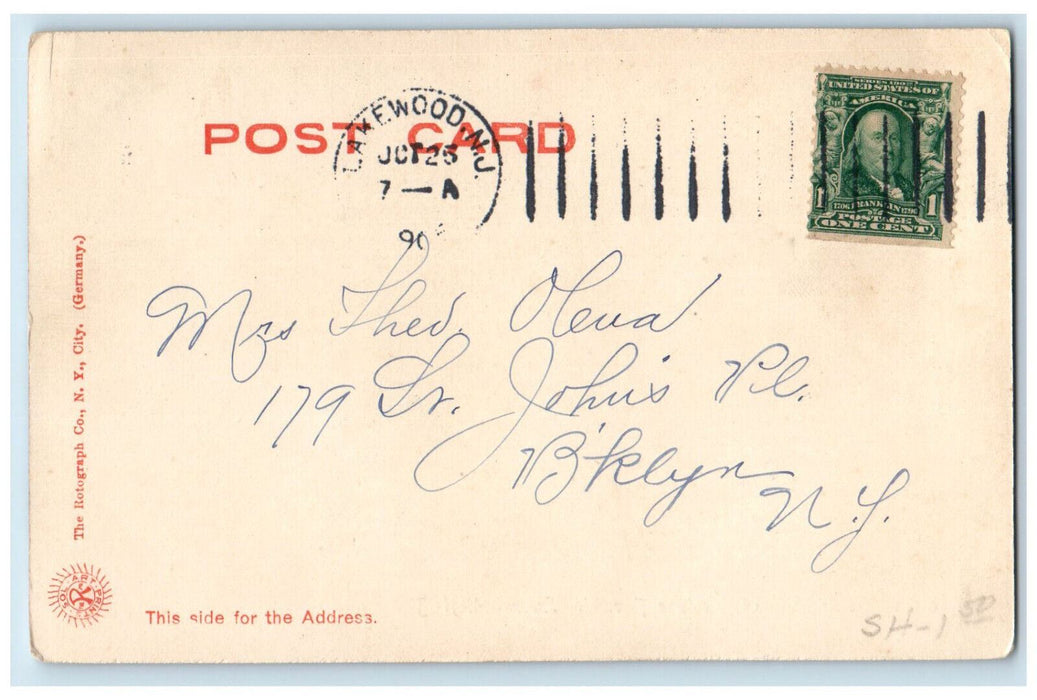 POST CARD
LAKEWOOD, N.J.
OCT 25
7—A
190
SERIES 1902
UNITED STATES OF
AMERICA
1 1706 FRANKLIN 1790 1
POSTAGE
ONE CENT
Mrs Theo. Oleva
179 St. John's Pl.
B'klyn
N.Y.
The Rotograph Co., N. Y., City. (Germany.)
SOL ART PRINT
This side for the Address.
SH-1 50